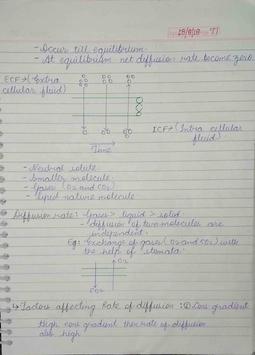 - Occur till equilibrium.
- At equilibrium net diffusion rate become zero.
ECF→ (Extra
cellular fluid)
ICF→ (Intra cellular
fluid)
Time
- Neutral solute
- Smaller molecule
- Gases (O2 and CO2)
- Lipid nature molecule
Diffusion rate: Gases > liquid > solid
- diffusion of two molecules are
independent.
Eg: Exchange of gases (O2 and CO2) with
the help of stomata.
O2
CO2
Factors affecting Rate of diffusion: ① Conc gradient
High conc gradient then rate of diffusion
also high